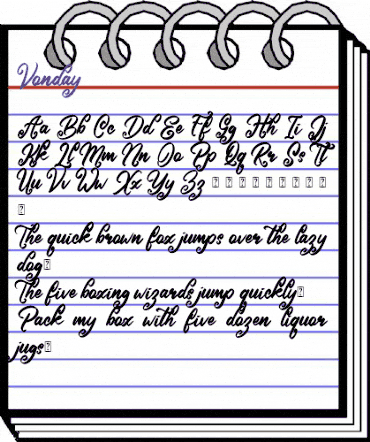 Vonday
Aa Bb Cc Dd Ee Ff Gg Hh Ii Jj
Kk Ll Mm Nn Oo Pp Qq Rr Ss Tt
Uu Vv Ww Xx Yy Zz
The quick brown fox jumps over the lazy
dog
The five boxing wizards jump quickly
Pack my box with five dozen liquor
jugs